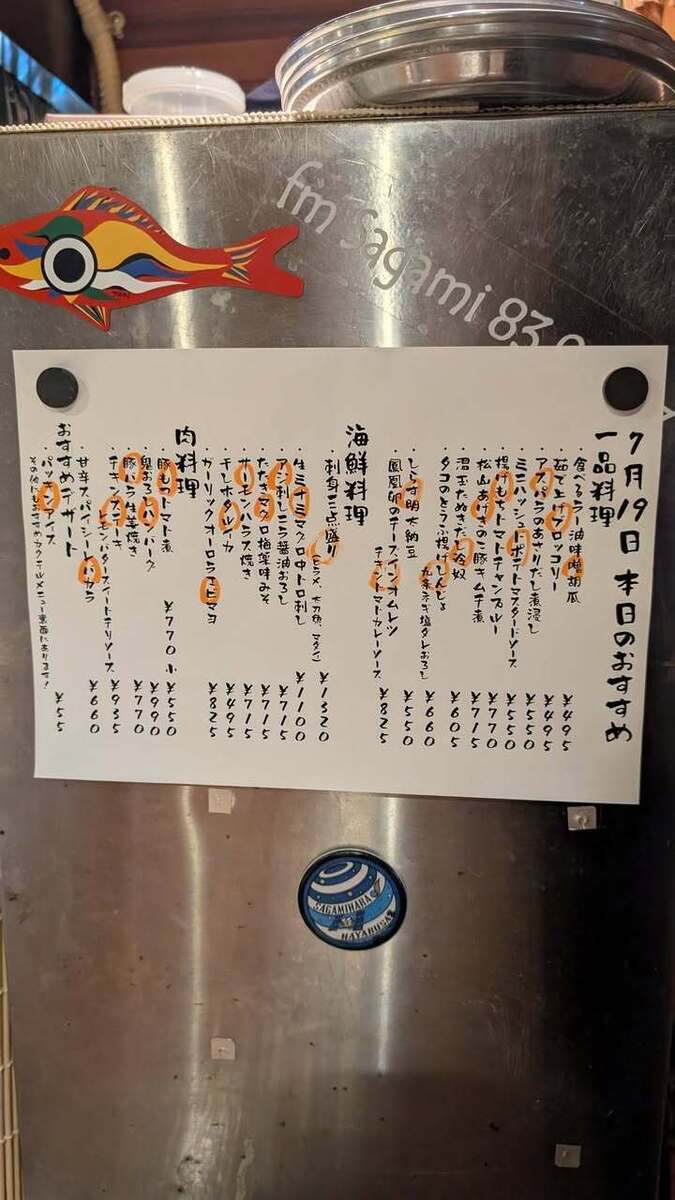 fm Sagami 83.9
7月19日 本日のおすすめ
一品料理
・食べるラー油味噌胡瓜 ¥495
・茹で上げブロッコリー ¥495
・アスパラのあさりだし煮浸し ¥550
・ミニハッシュドポテトマスタードソース ¥550
・揚げもちトマトチャンプルー ¥770
・松山あげきのこ豚キムチ煮 ¥715
・温玉たぬきだし冷奴 ¥605
・タコのとうふ揚げしんじょ 九条ネギ塩ダレおろし ¥660
・しらす明太納豆 ¥550
・鳳凰卵のチーズインオムレツ チキントマトカレーソース ¥825
海鮮料理
・刺身三点盛り(ヒラメ、太刀魚、マダイ) ¥1320
・生ミナミマグロ中トロ刺し ¥1100
・アジ刺しニラ醤油おろし ¥715
・たたきマグロ梅薬味みそ ¥715
・サーモンハラス焼き ¥715
・干しホタルイカ ¥495
・ガーリックオーロラエビマヨ ¥825
肉料理
・豚もつトマト煮 ¥770 小¥550
・鬼おろしハンバーグ ¥990
・豚バラ生姜焼き ¥770
・チキンステーキ レモンバタースイートチリソース ¥935
・甘辛スパイシーレバカラ ¥660
おすすめデザート
・パッションアイス ¥55
その他にもおすすめカクテルメニュー裏面にあります!
SAGAMIHARA
HAYABUSA2